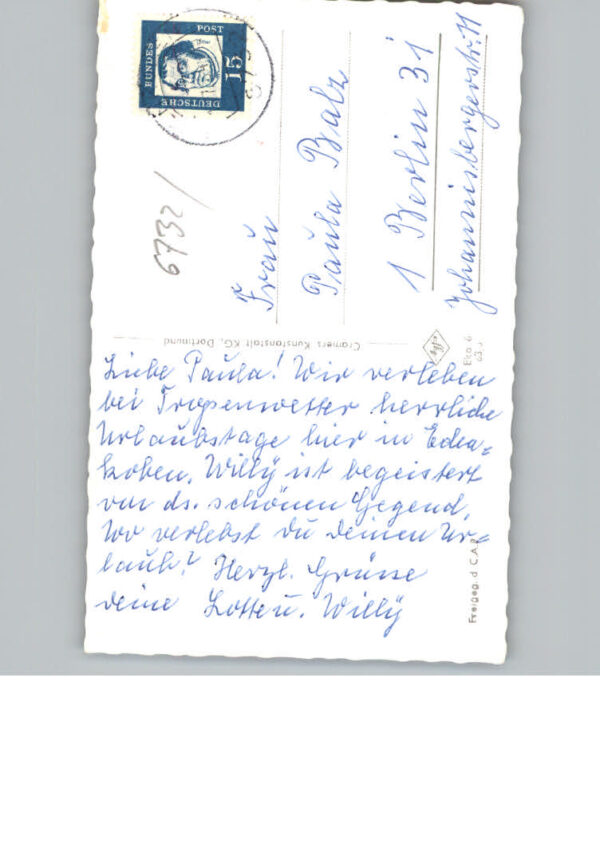 Liebe Paula! Wir verleben
bei Tropenwetter herrliche
Urlaubstage hier in Eden=
koben. Willÿ ist begeistert
von ds. schönen Gegend.
Wo verlebst du deinen Ur=
laub? Herzl. Grüsse
deine Lotte u. Willÿ
Frau
Paula Balz
1 Berlin 31
Johannisbergerstr. 11
6732/
DEUTSCHE
BUNDES
POST
15
Cramers Kunstanstalt KG, Dortmund
Freigeg. d. C.A.P.